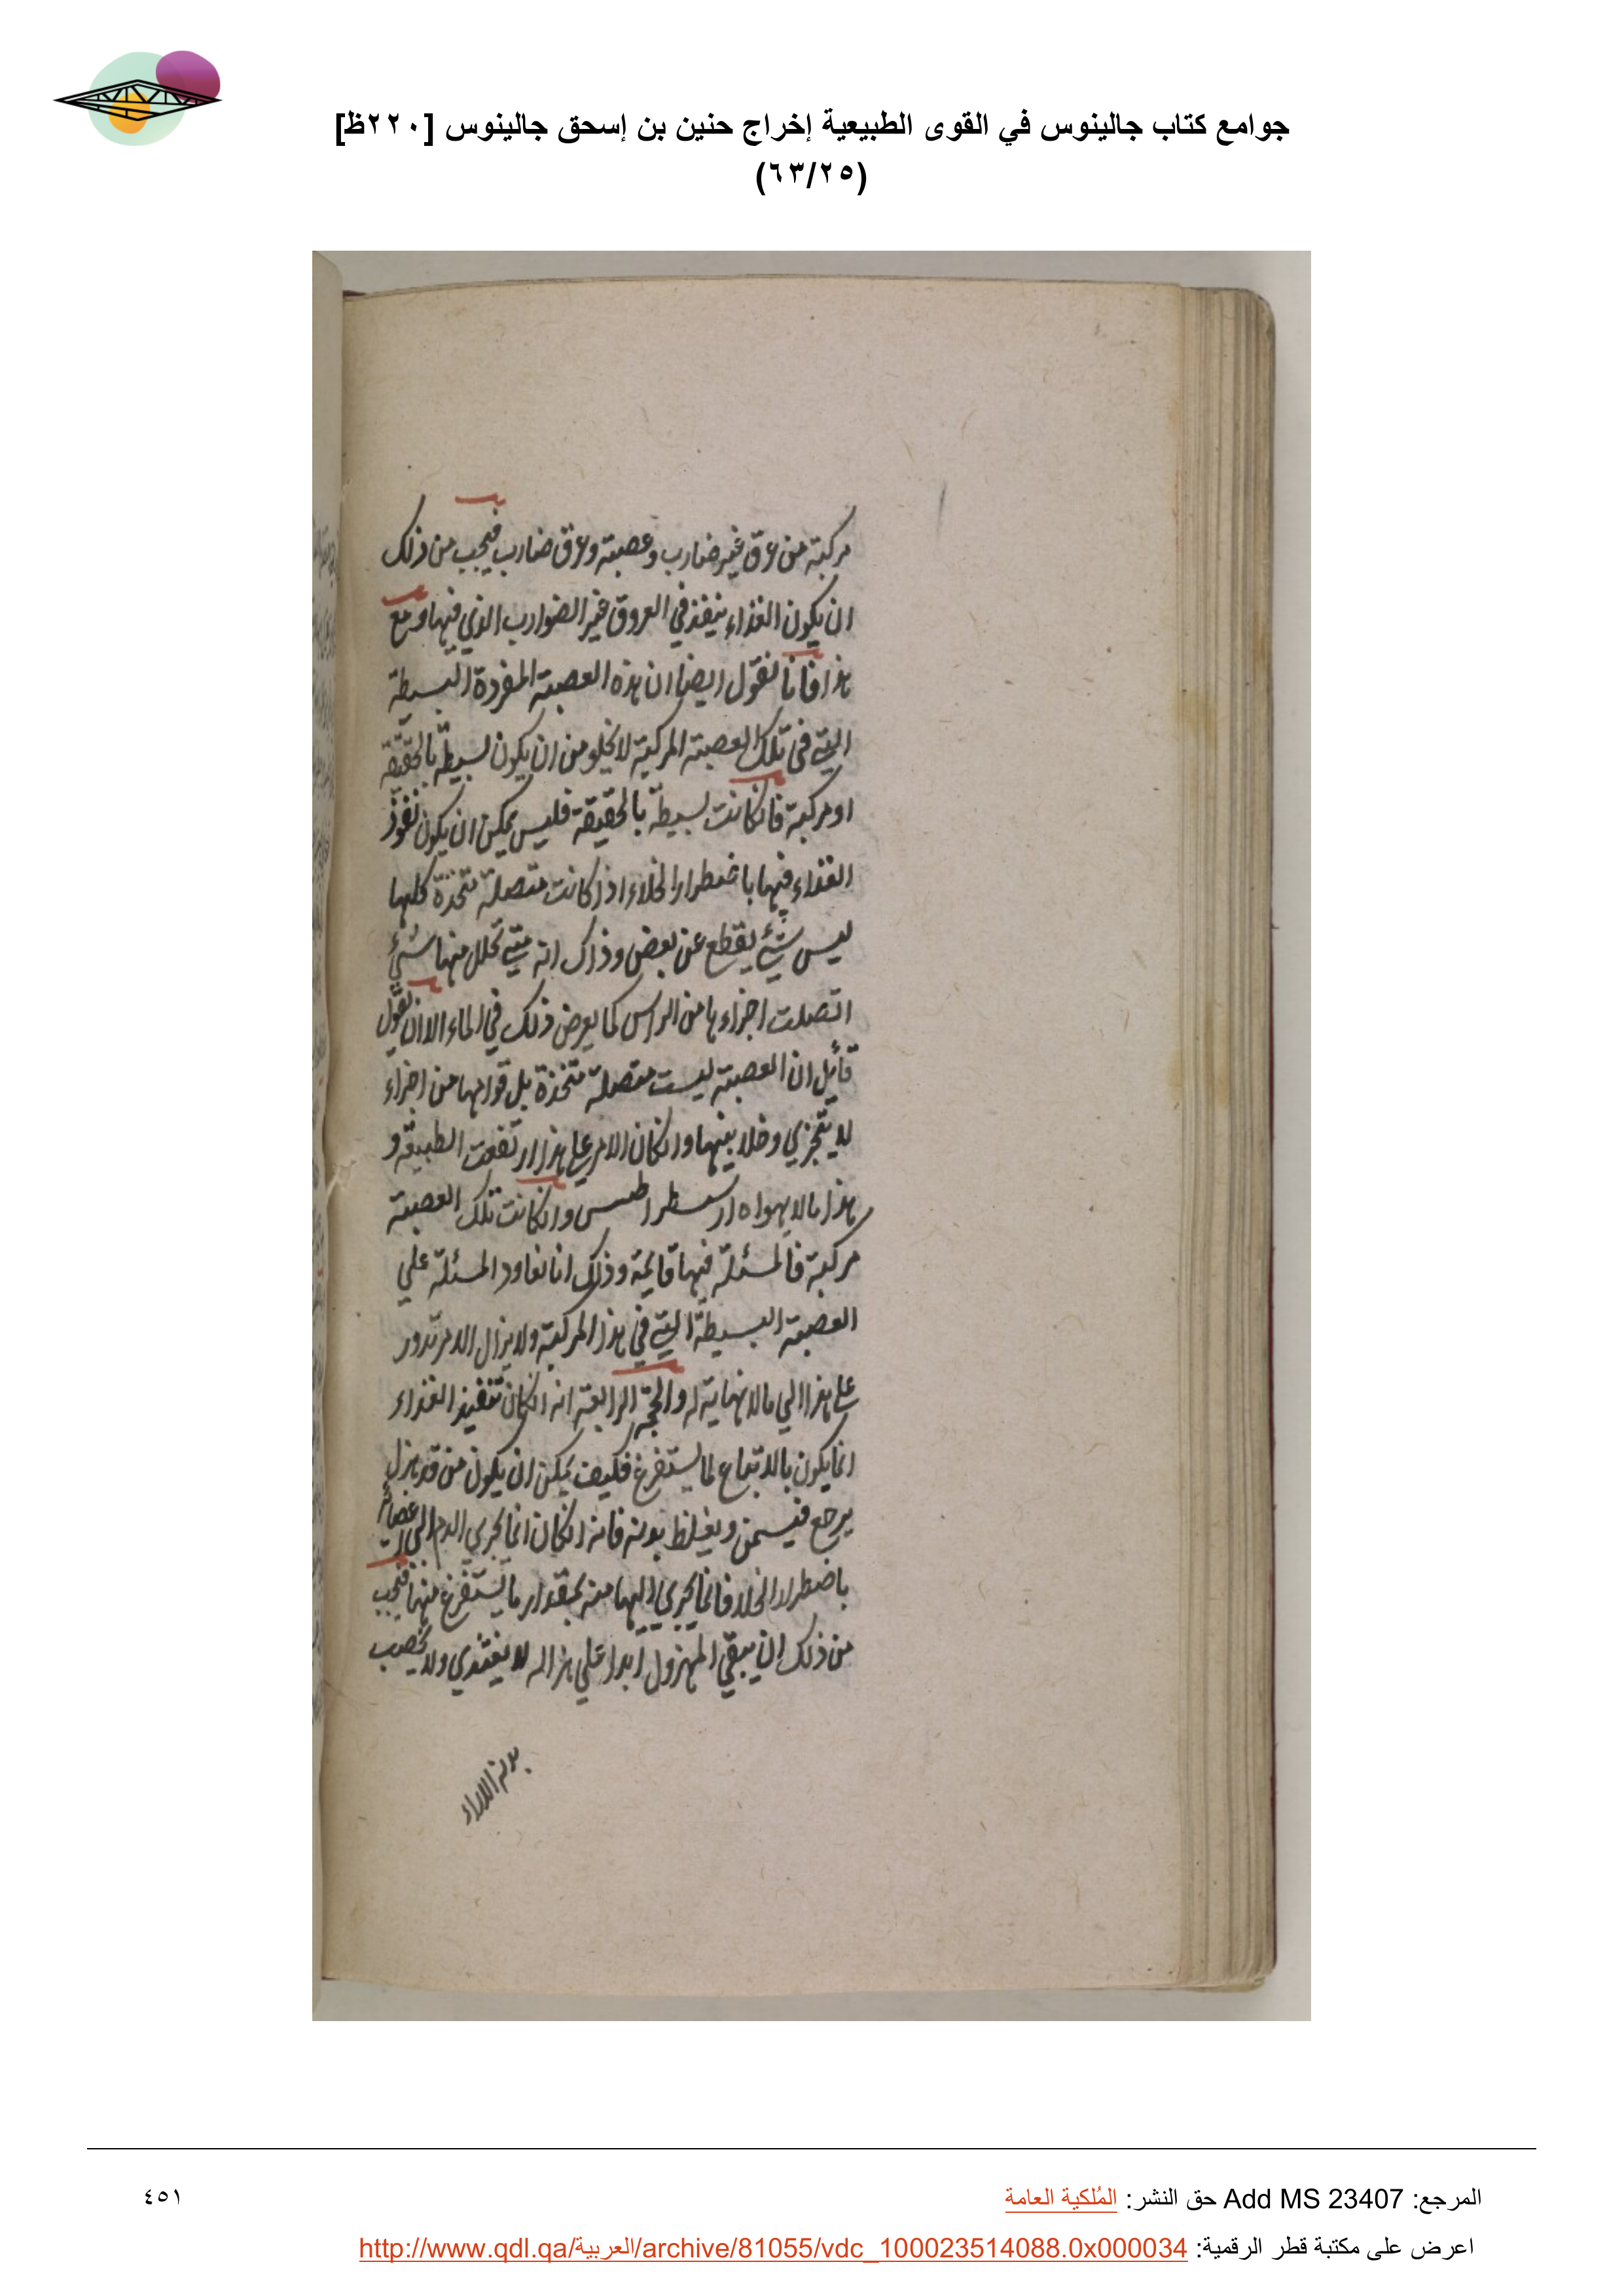 جوامع كتاب جالينوس في القوى الطبيعية إخراج حنين بن إسحق جالينوس [٢٢٠ظ]
(٦٣/٢٥)
مركبة من عرق غير ضارب وعصبة وعرق ضارب فيجب من ذلك
ان يكون الغذاء ينفذ في العروق غير الضوارب الذي فيها ومع
هذا فانا نقول ايضا ان هذه العصبة المفردة البسيطة
التي في تلك العصبة المركبة لا يخلو من ان يكون بسيطة بالحقيقة
او مركبة فان كانت بسيطة بالحقيقة فليس يمكن ان يكون نفوذ
الغذاء فيها باضطرار الخلاء اذ كانت متصلة متحدة كلها
ليس شيء يقطع عن بعض وذاك انه متي تحلل منها شيء
اتصلت اجزاءها من الراس كما يعرض ذلك في الماء الا ان يقول
قائل ان العصبة ليست متصلة متحدة بل قوامها من اجزاء
لا يتجزي وخلا بينها وان كان الامر علي هذا ارتفعت الطبيعة و
هذا ما لا يهواه ارسسطراطس وان كانت تلك العصبة
مركبة فالمسئلة فيها قائمة وذلك انا نعاود المسئلة علي
العصبة البسيطة التي في هذا المركبة ولا يزال الامر تدور
علي هذا الي ما لا نهاية له والحجة الرابعة انه ان كان تنفيذ الغذاء
انما يكون بالاتباع لما يستفرغ فكيف يمكن ان يكون من قد هزل
يرجع فيسمن ويغلظ بدنه فانه ان كان انما يجري الدم الي الاعضاء
باضطرار الخلا فانما يجري اليها منه بمقدار ما يستفرغ منها فيجب
من ذلك ان يبقي المهزول ابدا علي هزاله لا يغتذي ولا يخصب
المرجع: Add MS 23407 حق النشر: المُلكية العامة
٤٥١
اعرض على مكتبة قطر الرقمية: http://www.qdl.qa/العربية/archive/81055/vdc_100023514088.0x000034